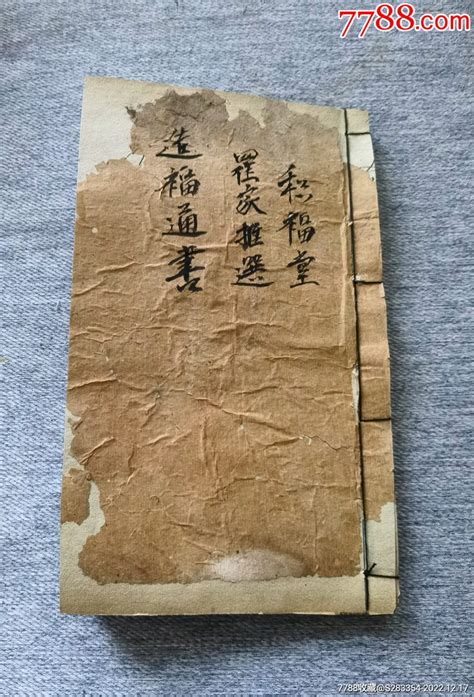 7788.com
和福堂
羅家推選
造福通書
7788收藏@S283354-2022.12.17